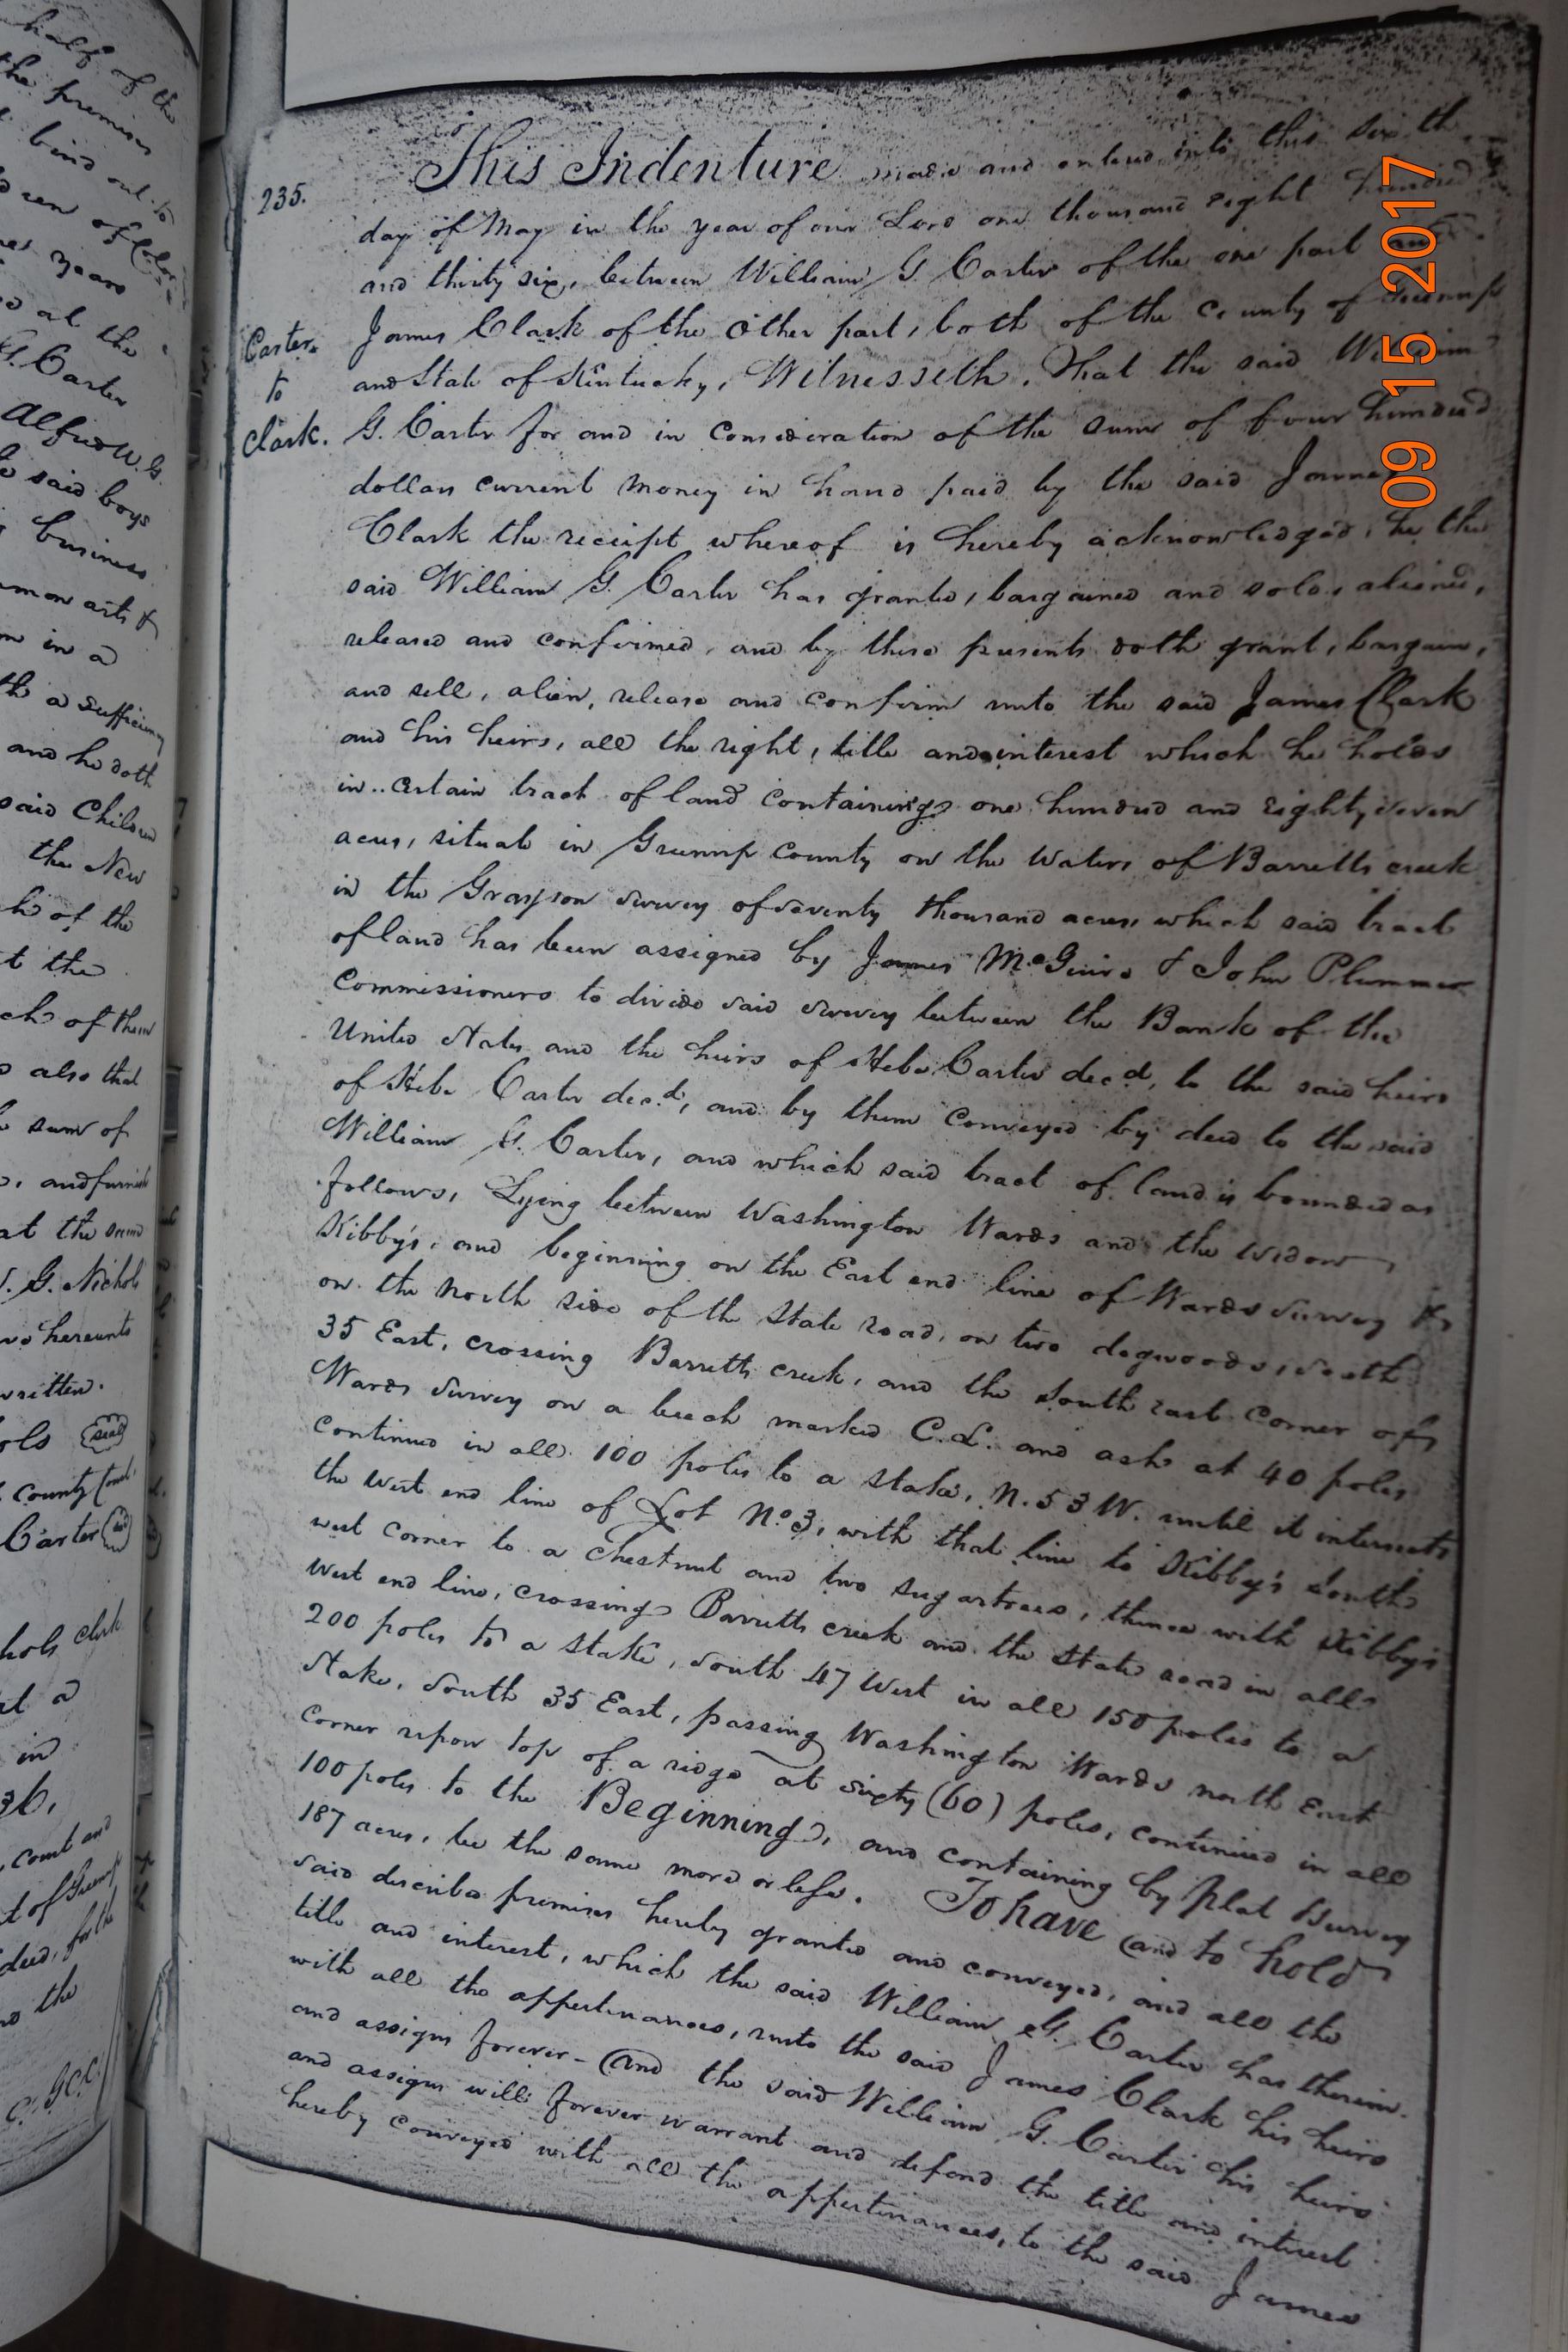 half of the
the premises
bind out to
ren of Color
years
at the
G. Carter
Alfred W. G.
said boys
business
mon arts &
in a
th a sufficiency
and he doth
said Children
the New
h of the
t the
ch of them
also that
sum of
and furnish
at the
G. Nichols
hereunto
written.
ols seal
County
Carter seal
hols clk
at a
in
36.
Court and
t of Greenup
deed, for the
the
C. G.C.C.
235.
Carter
to
Clark.
This Indenture made and entered into this sixth
day of May in the year of our Lord one thousand eight hundred
and thirty six, between William G. Carter of the one part and
James Clark of the other part, both of the County of Greenup
and State of Kentucky, Witnesseth, That the said William
G. Carter for and in consideration of the sum of four hundred
dollars current money in hand paid by the said James
Clark the receipt whereof is hereby acknowledged, he the
said William G. Carter has granted, bargained and sold, aliened,
released and confirmed, and by these presents doth grant, bargain,
and sell, alien, release and confirm unto the said James Clark
and his heirs, all the right, title and interest which he holds
in.. certain tract of land containing one hundred and eighty seven
acres, situate in Greenup County on the waters of Barretts creek
in the Grayson survey of seventy thousand acres which said tract
of land has been assigned by James McGuire & John Plummer
Commissioners to divide said survey between the Bank of the
United States and the heirs of Hebe Carter decd, to the said heirs
of Hebe Carter decd, and by them conveyed by deed to the said
William G. Carter, and which said tract of land is bounded as
follows, Lying between Washington Wards and the Widow
Kibby's, and beginning on the East end line of Wards survey
on the north side of the State road, on two dogwoods, south
35 East, crossing Barretts creek, and the South east corner of
Wards survey on a beech marked C.L. and ash at 40 poles
continued in all 100 poles to a stake, N. 53 W. until it intersects
the West end line of Lot No 3, with that line to Kibby's South
west corner to a chestnut and two sugartrees, thence with Kibby's
West end line, crossing Barretts creek and the State road in all
200 poles to a stake, South 47 West in all 150 poles to a
stake, South 35 East, passing Washington Wards north East
corner upon top of a ridge at sixty (60) poles, continued in all
100 poles to the Beginning, and containing by plat survey
187 acres, be the same more or less. To have and to hold
said described premises hereby granted and conveyed, and all the
title and interest, which the said William G. Carter has therein
with all the appertinances, unto the said James Clark his heirs
and assigns forever - And the said William G. Carter his heirs
and assigns will forever warrant and defend the title and interest
hereby conveyed with all the appertinances, to the said James
09 15 2017